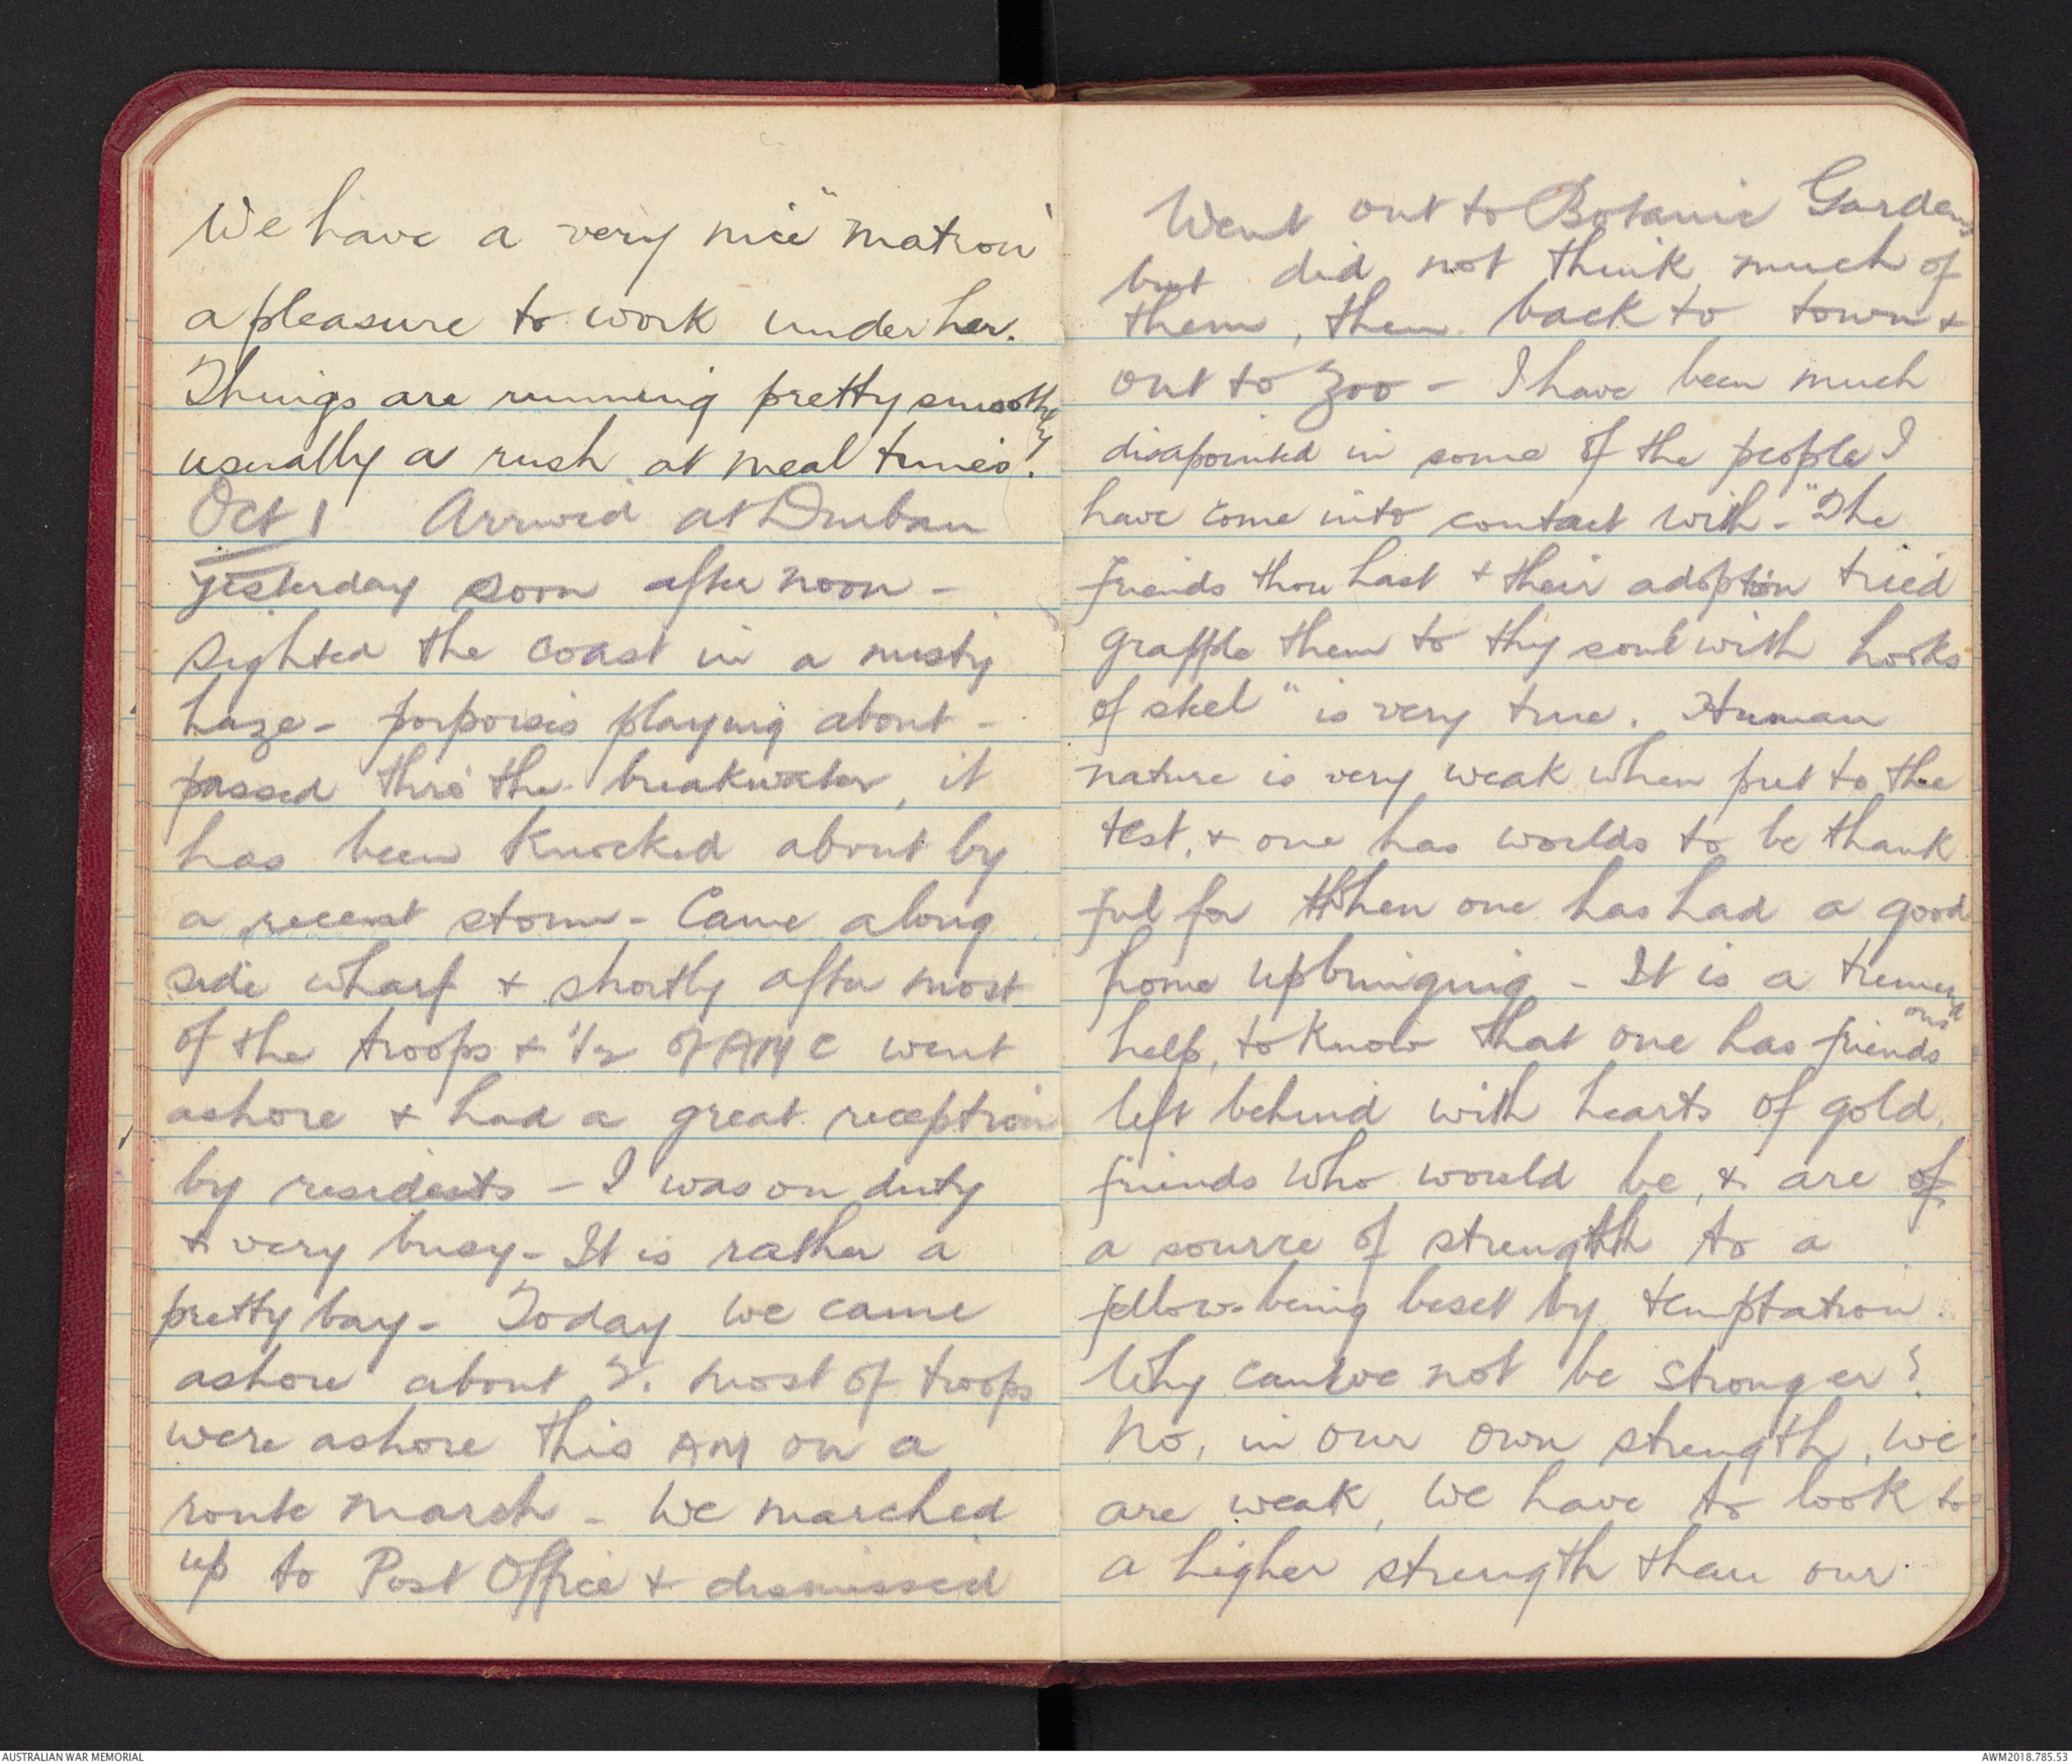 We have a very nice "matron"
a pleasure to work under her.
Things are running pretty smoothly
usually a rush at meal times.
Oct 1 Arrived at Durban
yesterday soon after noon -
sighted the coast in a misty
haze - porpoises playing about -
passed thro' the breakwater, it
has been knocked about by
a recent storm - Came along
side wharf & shortly after most
of the troops & 1/2 of AMC went
ashore & had a great reception
by residents - I was on duty
& very busy - It is rather a
pretty bay - Today we came
ashore about 2. most of troops
were ashore this AM on a
route march - We marched
up to Post Office & dismissed
Went out to Botanic Gardens
but did not think much of
them, then back to town &
out to Zoo - I have been much
disapointed in some of the people I
have come into contact with - "The
friends thou hast & their adoption tried
grapple them to thy soul with hooks
of steel" is very true. Human
nature is very weak when put to the
test, & one has worlds to be thank
ful for when one has had a good
home upbringing - It is a tremend
ous
help, to know that one has friends
left behind with hearts of gold,
friends who would be, & are of
a source of strength to a
fellow-being beset by temptation.
Why can we not be stronger?
No, in our own strength, we
are weak, we have to look to
a higher strength than our
AUSTRALIAN WAR MEMORIAL
AWM2018.785.53